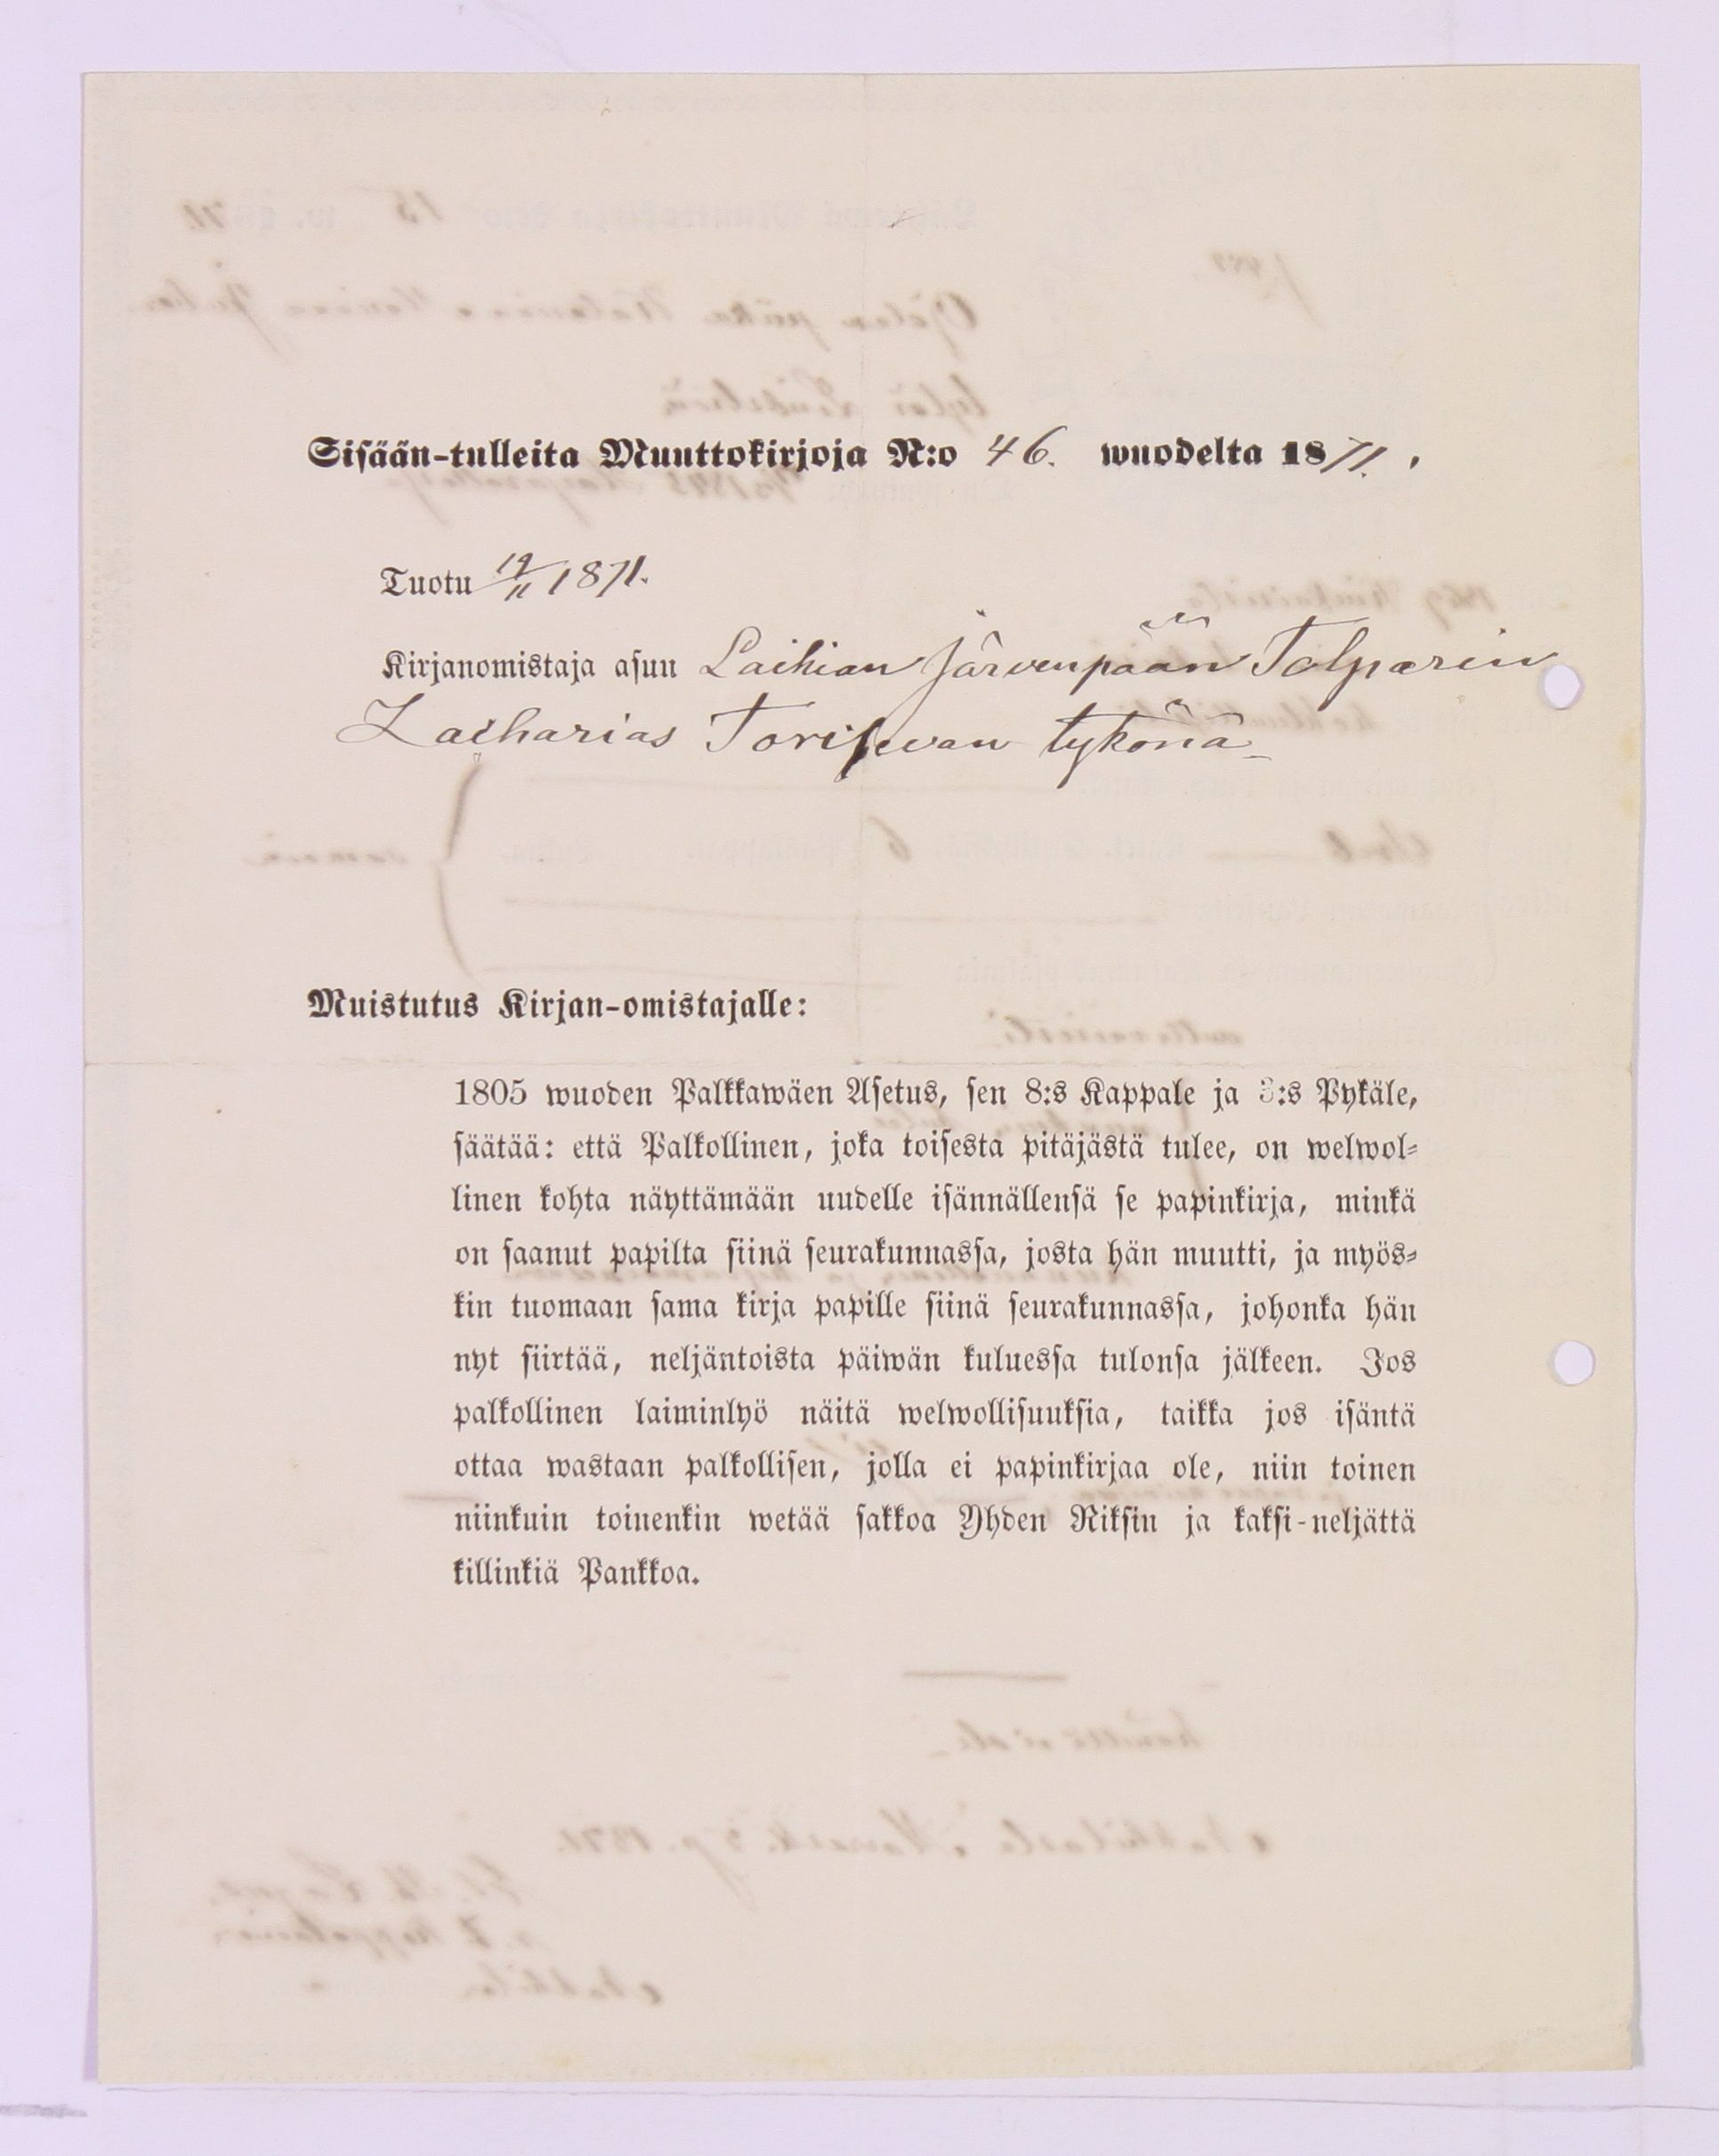 Sisään-tulleita Muuttokirjoja N:o 46. wuodelta 1871.
Tuotu 19/11 1871.
Kirjanomistaja asuu Laihian Järvenpään Tolparin
Zacharias Torisevan tykönä
Muistutus Kirjan-omistajalle:
1805 wuoden Palkkawäen Asetus, sen 8:s Kappale ja 3:s Pykäle,
säätää: että Palkollinen, joka toisesta pitäjästä tulee, on welwol-
linen kohta näyttämään uudelle isännällensä se papinkirja, minkä
on saanut papilta siinä seurakunnassa, josta hän muutti, ja myös-
kin tuomaan sama kirja papille siinä seurakunnassa, johonka hän
nyt siirtää, neljäntoista päiwän kuluessa tulonsa jälkeen. Jos
palkollinen laiminlyö näitä welwollisuuksia, taikka jos isäntä
ottaa wastaan palkollisen, jolla ei papinkirjaa ole, niin toinen
niinkuin toinenkin wetää sakkoa Yhden Riksin ja kaksi-neljättä
killinkiä Pankkoa.